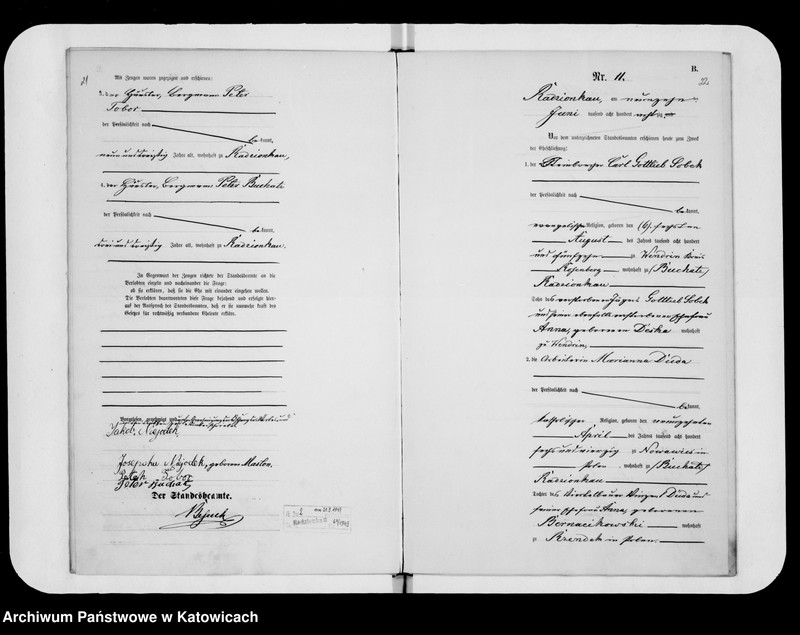 21
Als Zeugen waren zugezogen und erschienen:
3. der Häusler, Bergmann Peter
Tobor
der Persönlichkeit nach
bekannt,
neununddreißig Jahre alt, wohnhaft zu Radzionkau,
4. der Häusler, Bergmann Peter Buchalz
der Persönlichkeit nach
bekannt,
dreiunddreißig Jahre alt, wohnhaft zu Radzionkau.
In Gegenwart der Zeugen richtete der Standesbeamte an die
Verlobten einzeln und nacheinander die Frage:
ob sie erklären, daß sie die Ehe mit einander eingehen wollen.
Die Verlobten beantworteten diese Frage bejahend und erfolgte hier-
auf der Ausspruch des Standesbeamten, daß er sie nunmehr kraft des
Gesetzes für rechtmäßig verbundene Eheleute erkläre.
Vorgelesen, genehmigt und
Jakob Majotek
Josepha Majotek, geborene
Peter Tobor
Peter
Der Standesbeamte.
B.
22
Nr. 11.
Radzionkau, am neunzehn
Juni tausend acht hundert
Vor dem unterzeichneten Standesbeamten erschienen heute zum Zweck
der Eheschließung:
1. der Carl Gottlieb Sobek
der Persönlichkeit nach
bekannt,
evangelischer Religion, geboren den (6) sechsten
August des Jahres tausend acht hundert
und fünfzehn zu Wendrin Kreis
Rosenberg, wohnhaft zu (Buchatz)
Radzionkau
Sohn des verstorbenen Jägers Gottlieb Sobek
und seiner ebenfalls verstorbenen Ehefrau
Anna, geborenen wohnhaft
zu Wendrin,
2. die Arbeiterin Marianna Duda
der Persönlichkeit nach
bekannt,
katholischer Religion, geboren den neunzehnten
April des Jahres tausend acht hundert
sechs und vierzig zu Nowawies in
Polen, wohnhaft zu (Buchatz)
Radzionkau
Tochter des Viertelbauer Duda und
seiner Ehefrau Anna, geborenen
Bernacikowski wohnhaft
zu in Polen.
Archiwum Państwowe w Katowicach